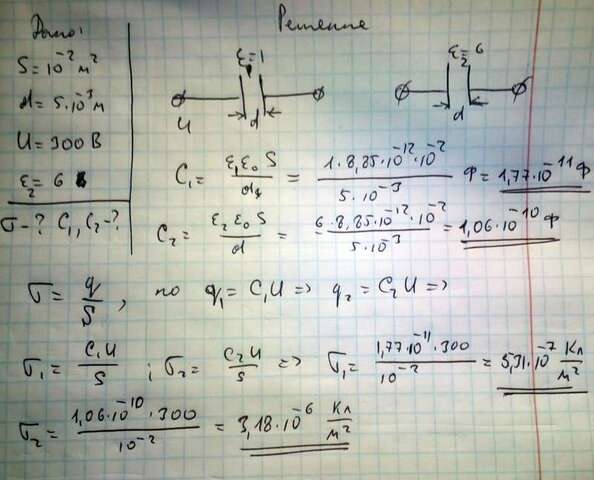 Дано:
S = 10⁻² м²
d = 5·10⁻³ м
U = 300 В
ε₂ = 6
σ - ? C₁, C₂ - ?
Решение
ε=1
U
d
ε₂=6
d
C₁ = ε₁ε₀S/d = 1·8,85·10⁻¹²·10⁻²/5·10⁻³ Ф = 1,77·10⁻¹¹ Ф
C₂ = ε₂ε₀S/d = 6·8,85·10⁻¹²·10⁻²/5·10⁻³ = 1,06·10⁻¹⁰ Ф
σ = q/S, но q₁ = C₁U => q₂ = C₂U =>
σ₁ = C₁U/S ; σ₂ = C₂U/S => σ₁ = 1,77·10⁻¹¹·300/10⁻² = 5,31·10⁻⁷ Кл/м²
σ₂ = 1,06·10⁻¹⁰·300/10⁻² = 3,18·10⁻⁶ Кл/м²